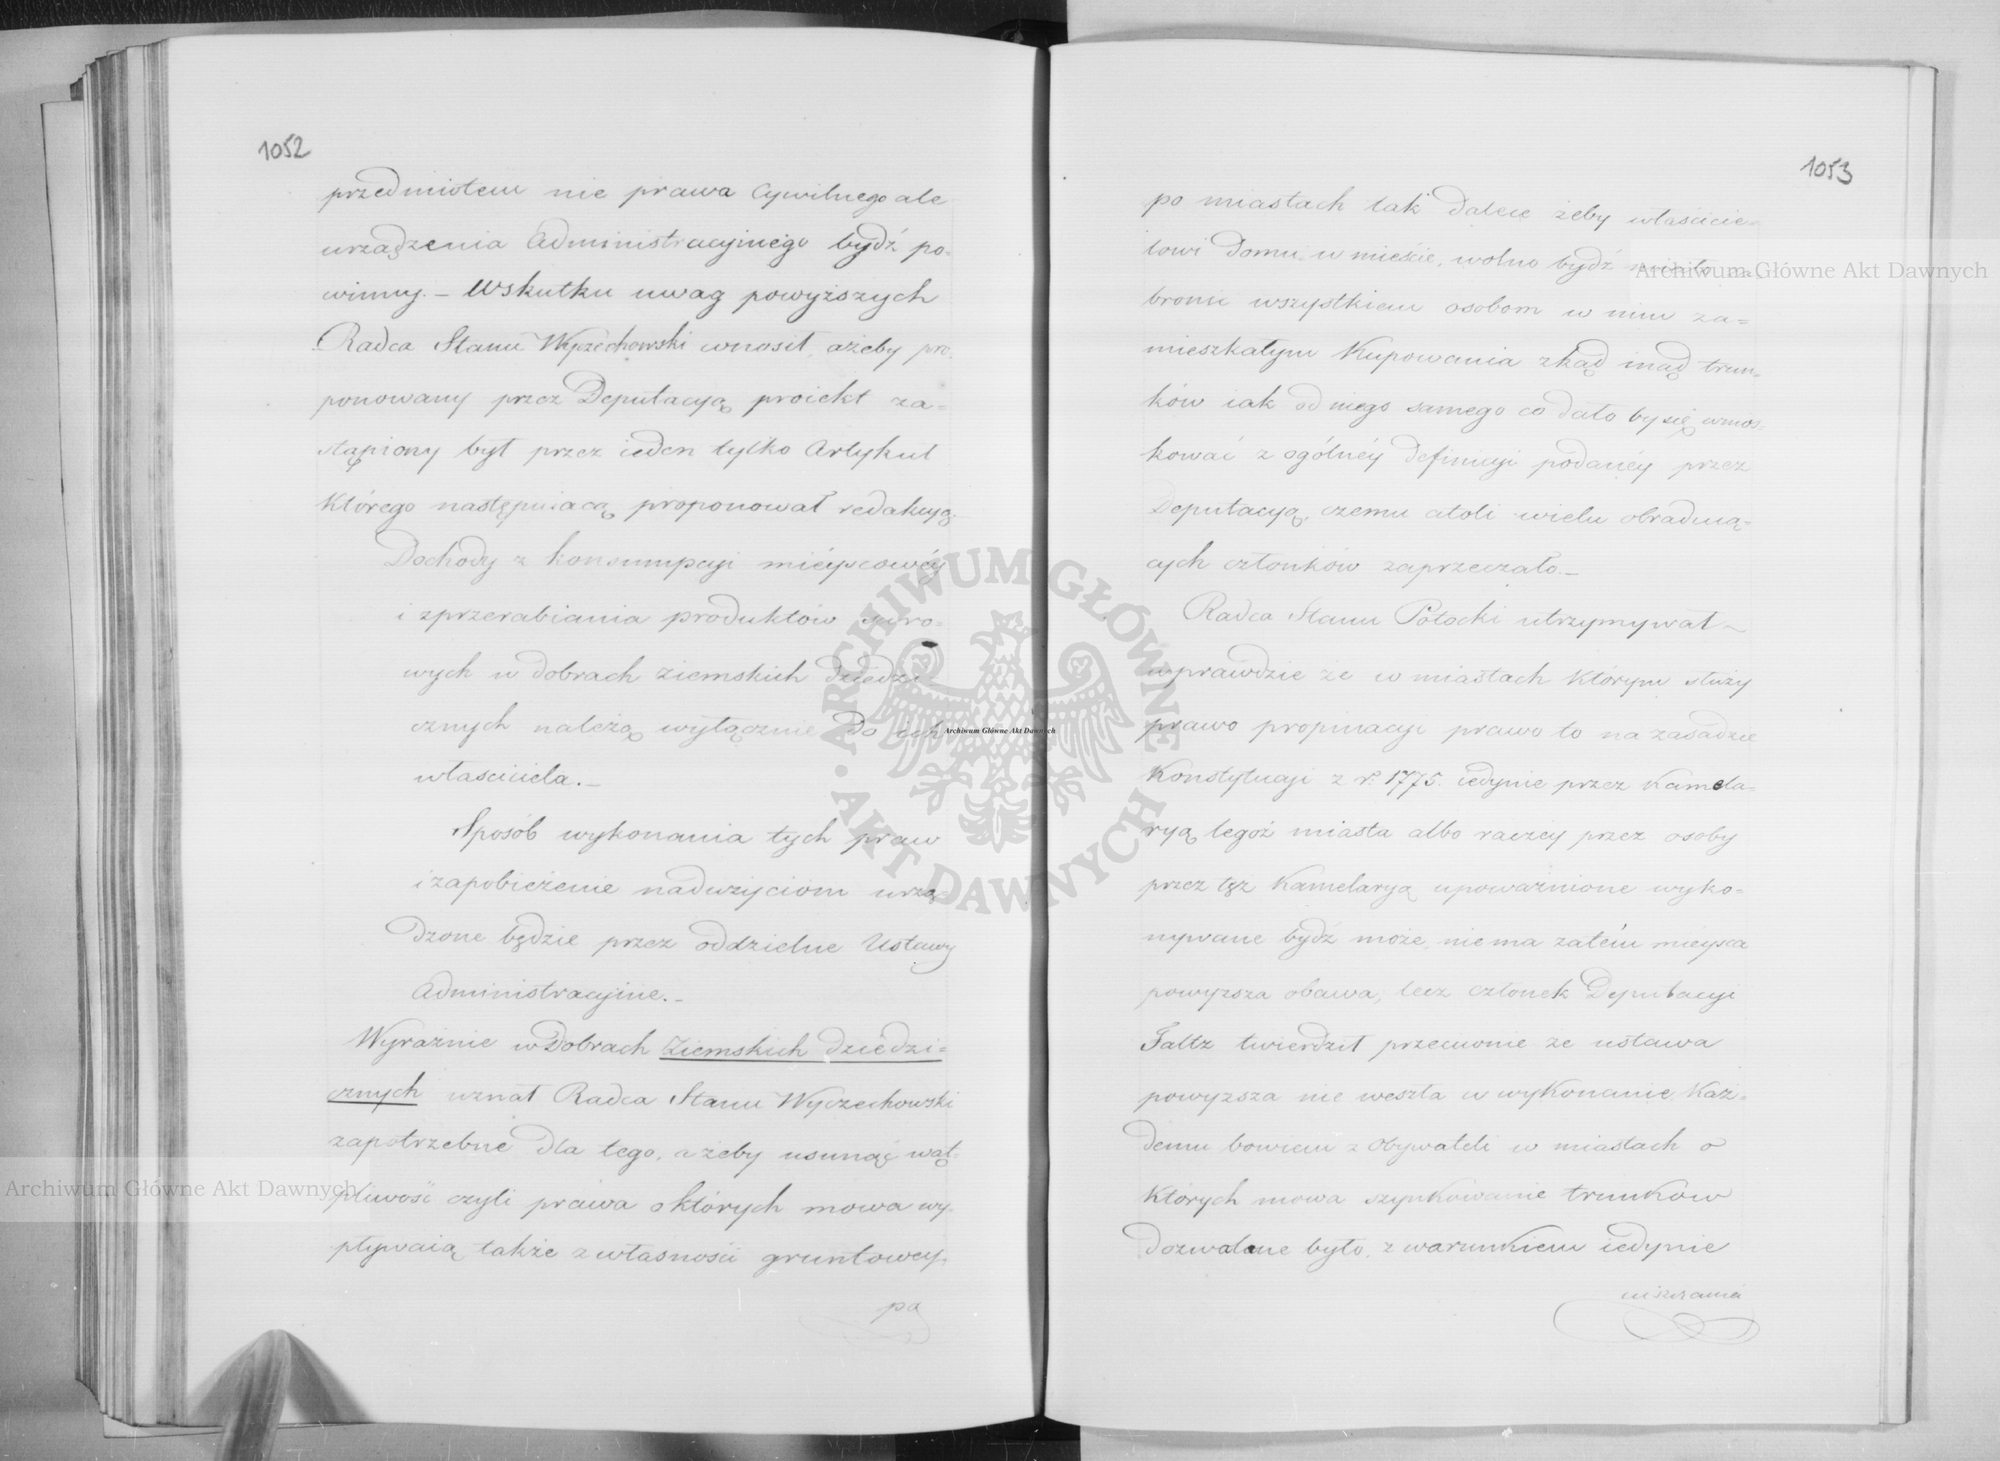 1052
przedmiotem nie prawa Cywilnego ale
urządzenia Administracyjnego bydź po-
winny. – Wskutku uwag powyższych
Radca Stanu Wyczechowski wnosił, ażeby pro-
ponowany przez Deputacyą proiekt za-
stąpiony był przez ieden tylko Artykuł
którego następuiacą proponował redakcyą
Dochody z konsumpcyi miéyscowéy
i zprzerabiania produktów suro-
wych w dobrach ziemskich dziedzi-
cznych należą wyłącznie do ich
własciciela. –
Sposób wykonania tych praw
i zapobieżenie nadużyciom urzą-
dzone będzie przez oddzielne Ustawy
Administracyine. –
Wyraźnie w Dobrach Ziemskich dziedzi-
cznych uznał Radca Stanu Wyczechowski
zapotrzebne dla tego, ażeby usunąć wąt-
pliwość czyli prawa o których mowa wy-
pływaią także z własności gruntowey,
po
1053
po miastach tak dalece żeby właścicie-
lowi domu w mieście, wolno bydź
bronić wszystkiem osobom w nim za-
mieszkałym Kupowania zkąd inąd trun-
ków iak od niego samego co dało by się wnos-
kować z ogólnéy definicyi podanéy przez
Deputacyą, czemu atoli wielu obraduią-
cych członków zaprzeczało. –
Radca Stanu Potocki utrzymywał
wprawdzie że w miastach którym służy
prawo propinacyi prawo to na zasadzie
Konstytucyi z r. 1775. iedynie przez Kamela-
ryą tegoż miasta albo raczéy przez osoby
przez tęż Kamelaryą upoważnione wyko-
nywane bydź może, niema zatém mieysca
powyzsza obawa, lecz członek Deputacyi
Faltz twierdził przeciwnie że ustawa
powyzsza nie weszła w wykonanie, każ-
demu bowiem z Obywateli w miastach o
których mowa szynkowanie trunków
dozwalane było, z warunkiem iedynie
uiszczania
Archiwum Główne Akt Dawnych
Archiwum Główne Akt Dawnych
Archiwum Główne Akt Dawnych
ARCHIWUM GŁÓWNE · AKT DAWNYCH ·